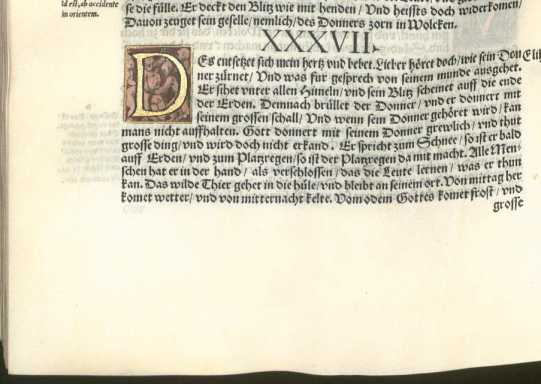 id est, ab accidente
in orientem.
se die fülle. Er deckt den Blitz wie mit henden / Vnd heissts doch widerkomen /
Dauon zeuget sein geselle / nemlich / des Donners zorn in Wolcken.
XXXVII.
DEs entsetzet sich mein hertz vnd bebet. Lieber höret doch / wie sein Don
ner zürnet / Vnd was für gesprech von seinem munde ausgehet.
Er sihet vnter allen Himeln / vnd sein Blitz scheinet auff die ende
der Erden. Demnach brüllet der Donner / vnd er donnert mit
seinem grossen schall / Vnd wenn sein Donner gehöret wird / kan
mans nicht auffhalten. Gott donnert mit seinem Donner grewlich / vnd thut
grosse ding / vnd wird doch nicht erkand. Er spricht zum Schnee / so ist er bald
auff Erden / vnd zum Platzregen / so ist der Platzregen da mit macht. Alle Men-
schen hat er in der hand / als verschlossen / das die Leute lernen / was er thun
kan. Das wilde Thier gehet in die hüle / vnd bleibt an seinem ort. Von mittag her
komet wetter / vnd von mitternacht kelte. Vom odem Gottes komet frost / vnd
grosse